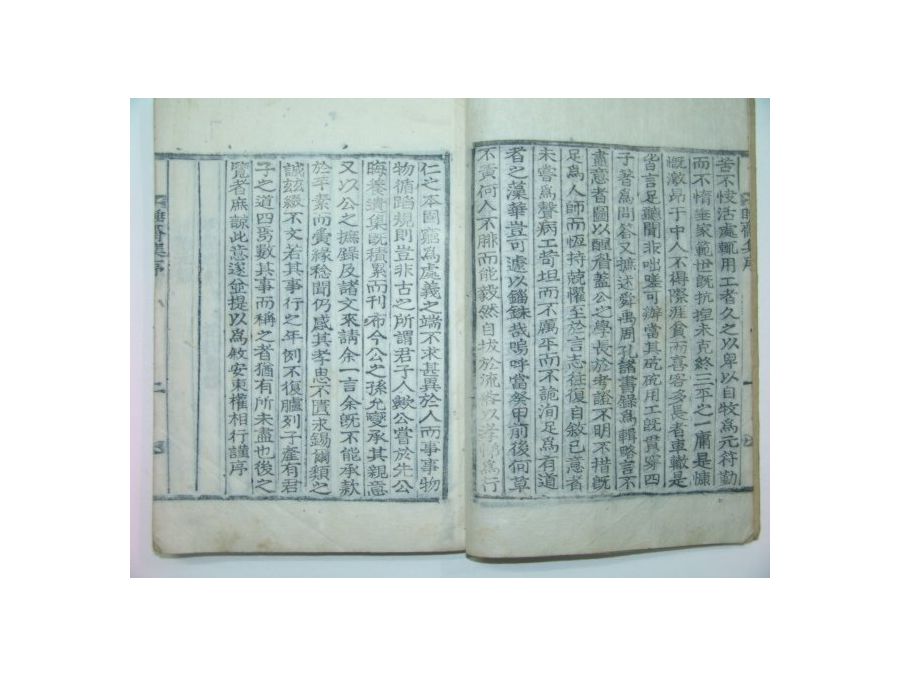 苦不悛活處輒用工者久之以卑以自牧爲元符勤
而不惰垂家範世旣抗捏未克終三平之一庸是慷
慨激昂于中人不得際涯貧而喜客多長者車轍是
皆言足聽聞非咄嗟可辦當其矻矻用工旣貫穿四
子著爲問答又摭述舜禹周孔諸書錄爲輯略言不
盡意者圖以醒膚蓋公之學長於考證不明不措旣
足爲人師而恆持兢懼至於言志往復自敘已意者
未嘗爲聲病工苟坦而不厲平而不詭洵足爲有道
者之藻華豈可遽以錙銖哉嗚呼當癸甲前後何草
不黃何人不腓而能毅然自拔於流俗以孝悌爲行
仁之本固窮爲處義之端不求甚異於人而事事物
物循蹈規則豈非古之所謂君子人歟公嘗於先公
晦養遺集旣積累而刊布今公之孫允燮承其親意
又以公之摭錄及諸文來請余一言余旣不能承款
於平素而夤緣稔聞仍感其孝思不匱永錫爾類之
誠玆繳不文若其事行之年例不復臚列子産有君
子之道四焉數其事而稱之者猶有所未盡也後之
覽者庶諒此意遂並提以爲敘安東權相行謹序
睡齋集序
睡齋集序
一
二